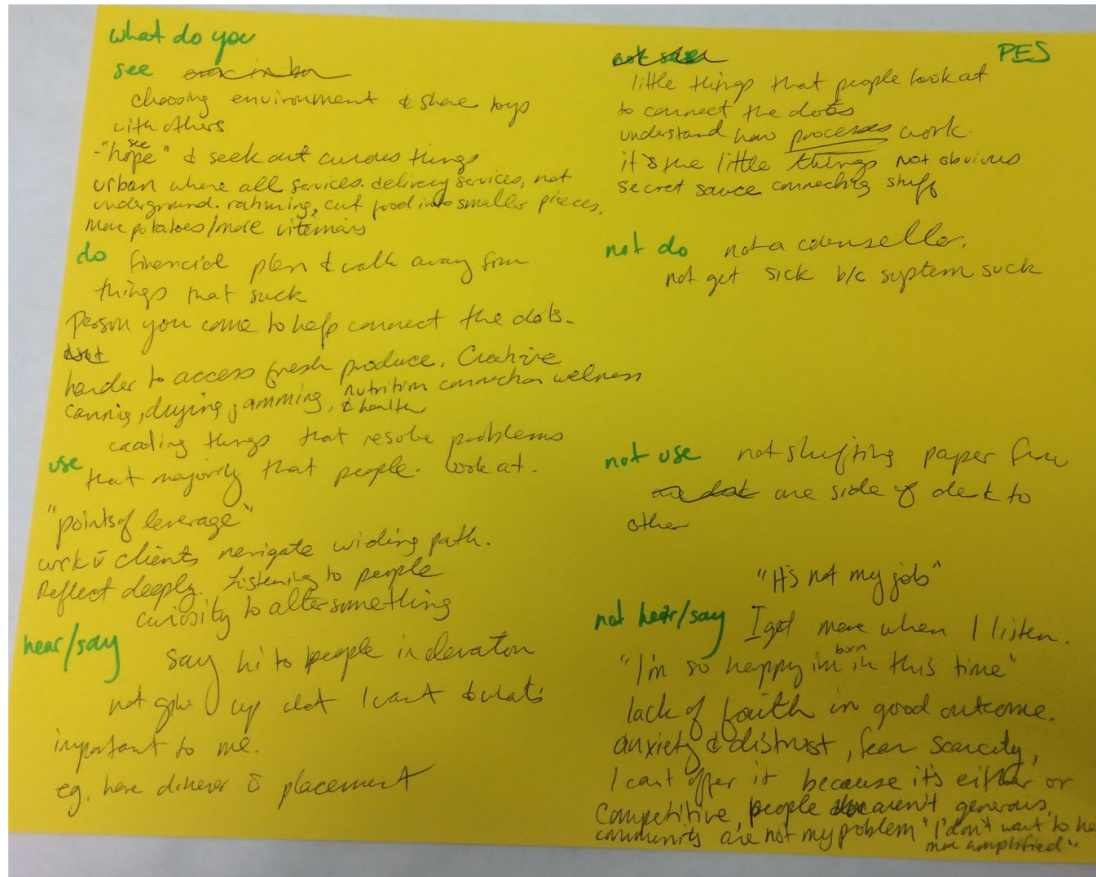 what do you
see
choosing environment & share toys
with others
- "hope" see & seek out curious things
urban where all services. delivery services, not
underground. rationing, cut food into smaller pieces,
more potatoes/more vitamins
do financial plan & walk away from
things that suck
Person you come to help connect the dots.
harder to access fresh produce. Creative
canning, drying, jamming, nutrition connection welness
& health
creating things that resolve problems
use that majority that people. look at.
"points of leverage"
work c clients navigate widing path.
Reflect deeply. Listening to people
curiosity to alter something
hear/say say hi to people in elevator
not give up what I want & what's
important to me.
eg. have dinner placement
PES
not see
little things that people look at
to connect the dots
understand how processes work
it's the little things not obvious
secret sauce connecting stuff
not do not a counseller.
not get sick b/c system suck
not use not shifting paper from
one side of desk to
other
"It's not my job"
not hear/say I get more when I listen.
"I'm so happy im born in this time"
lack of faith in good outcome.
anxiety & distrust, fear scarcity,
I cant offer it because it's either or
Competitive, people aren't generous,
community are not my problem "I don't want to he
more amplified"